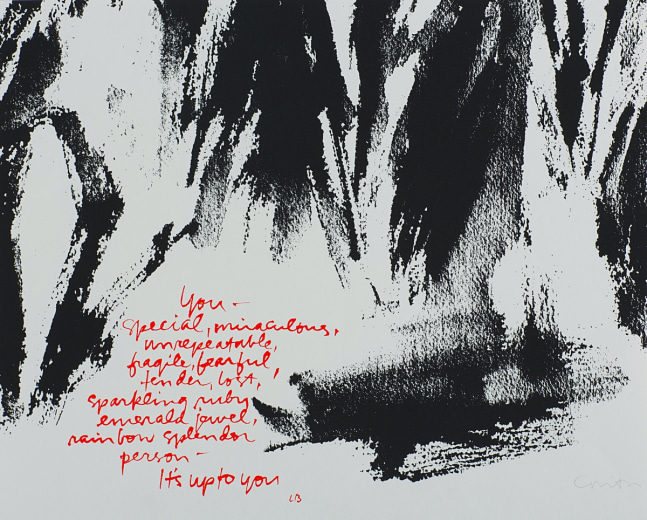 You –
special, miraculous,
unrepeatable,
fragile, fearful,
tender, lost,
sparkling ruby
emerald jewel,
rainbow splendor
person –
It's up to you